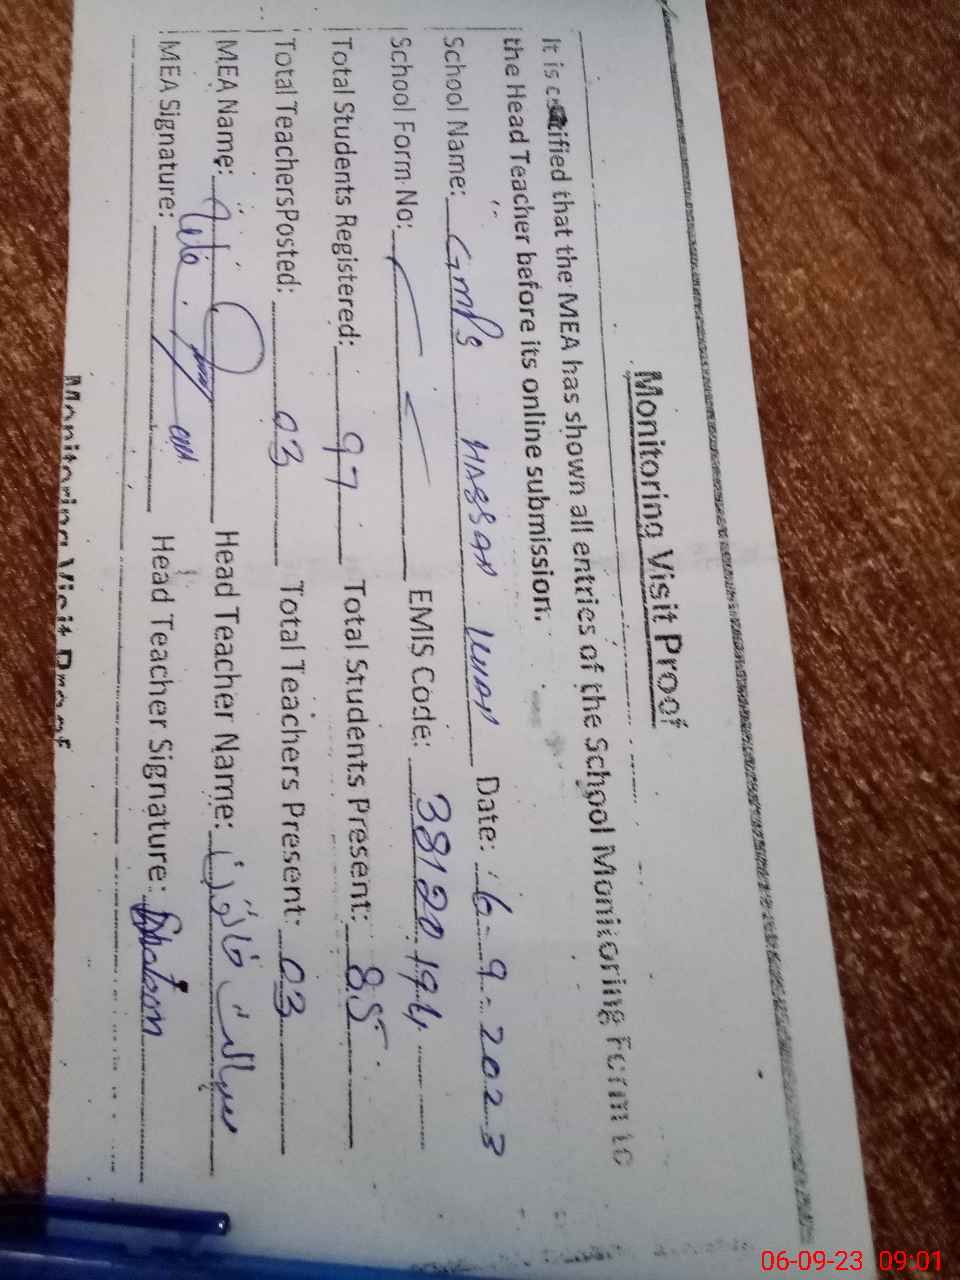 Monitoring Visit Proof
It is certified that the MEA has shown all entries of the School Monitoring Form to
the Head Teacher before its online submission.
School Name: GMPS HASSAN WAN Date: 6-9-2023
School Form No: EMIS Code: 38120194
Total Students Registered: 97 Total Students Present: 85
Total TeachersPosted: 03 Total Teachers Present: 03
MEA Name: Head Teacher Name:
MEA Signature: Head Teacher Signature:
Monitoring Visit Proof
06-09-23 09:01